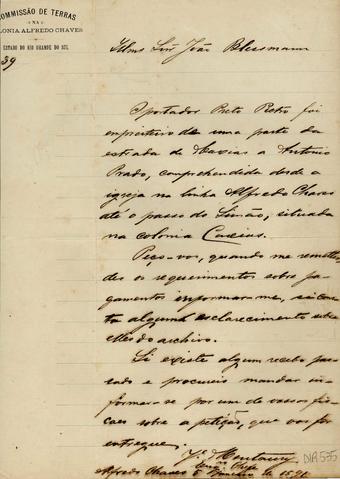 COMMISSÃO DE TERRAS
NA
COLONIA ALFREDO CHAVES
ESTADO DO RIO GRANDE DO SUL
39
Illmo Snr João Blessmann
O portador Preto Retro foi
empreiteiro de uma parte da
estrada de Caxias a Antonio
Prado, comprehendida desde a
igreja na linha Alfredo Chaves
até o passo do Simão, situada
na colonia Caxias.
Peço-vos, quando me remetter
des os requerimentos sobre pa
gamentos informar-me, si cons
ta algum esclarecimento sobre
archivo.
Si existe algum recebo pas
sado e procureis mandar in
formar-se por um de vossos fis
caes sobre a petição, que vos for
entregue.
Jº Montaury
Engº Chefe
Alfredo Chaves 5 de 1891
DIA 535